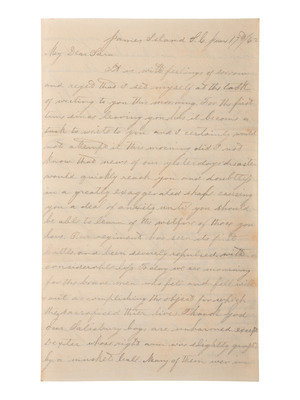 James Island S.C. June 17th 62
My Dear Sara
It is with feelings of sorrow
and regret that I set myself at the task
of writing to you this morning. For the first
time since leaving you has it become a
task to write to you and I certainly would
not attempt it this morning did I not
know that news of our yesterdays disaster
would quickly reach you and doubtless
in a greatly exaggerated shape causing
you a deal of anxiety until you should
be able to learn of the welfare of those you
love. Our regiment has seen its first
battle and been severely repulsed with
considerable loss. To day we are mourning
for the brave men who fell and fell with
out accomplishing the object for which
they sacrificed their lives. Thank god
our Salisbury boys are unharmed except
Dexter whose right arm was slightly grazed
by a musket ball. Many of them were in